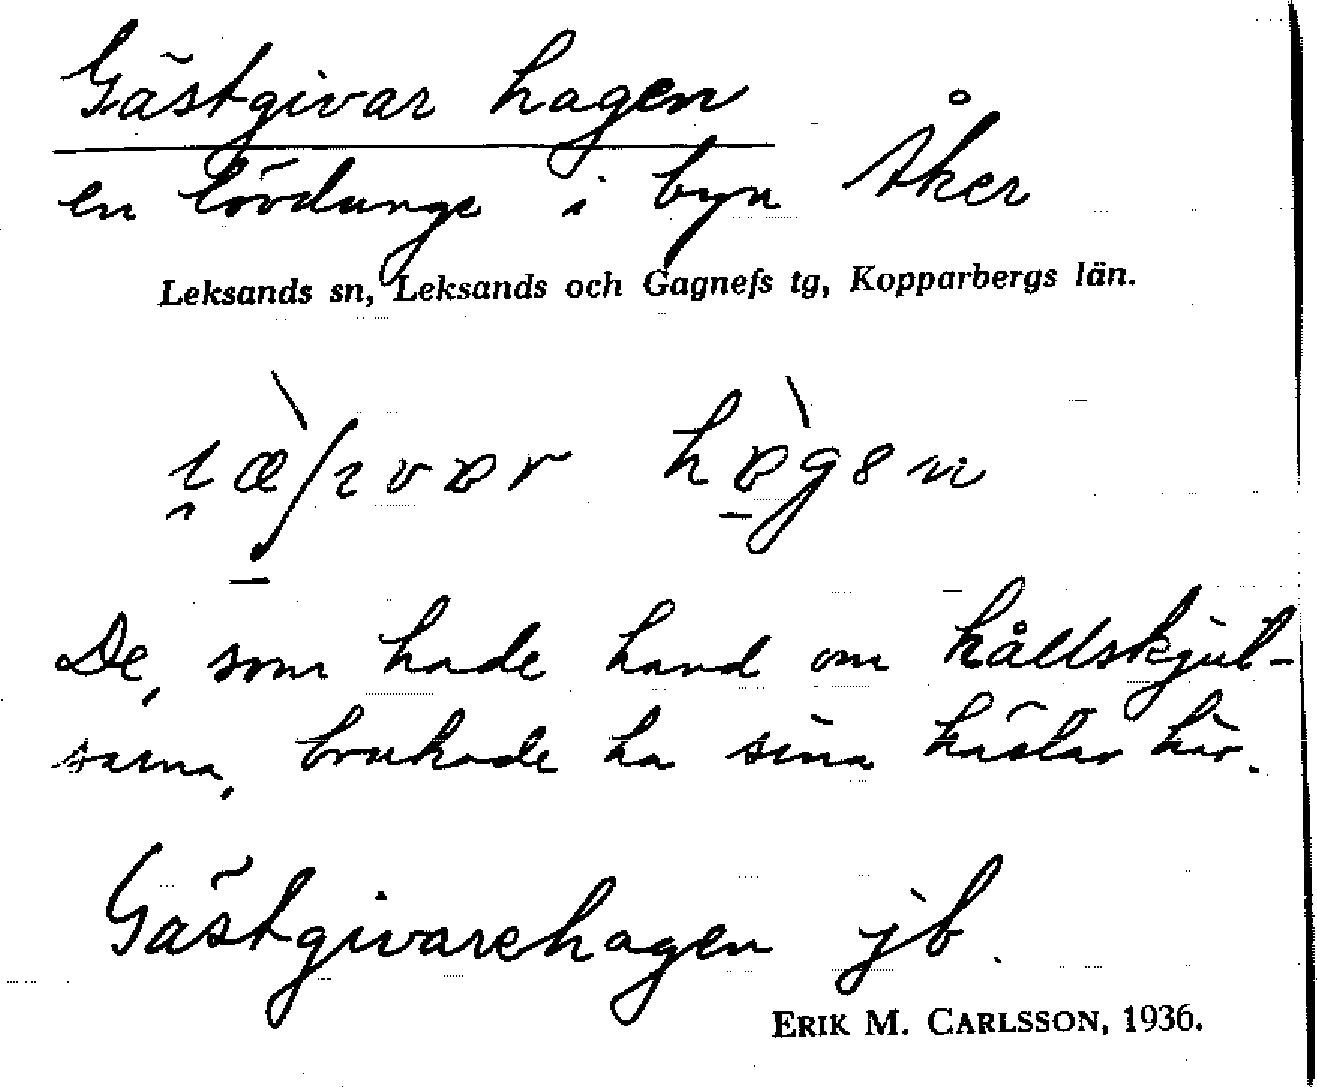 Gästgivar hagen
en lövdunge i byn Åker
Leksands sn, Leksands och Gagnefs tg, Kopparbergs län.
De, som hade hand om hållskjut-
sarna, brukade ha sina hästar här.
Gästgivarehagen jb.
ERIK M. CARLSSON, 1936.